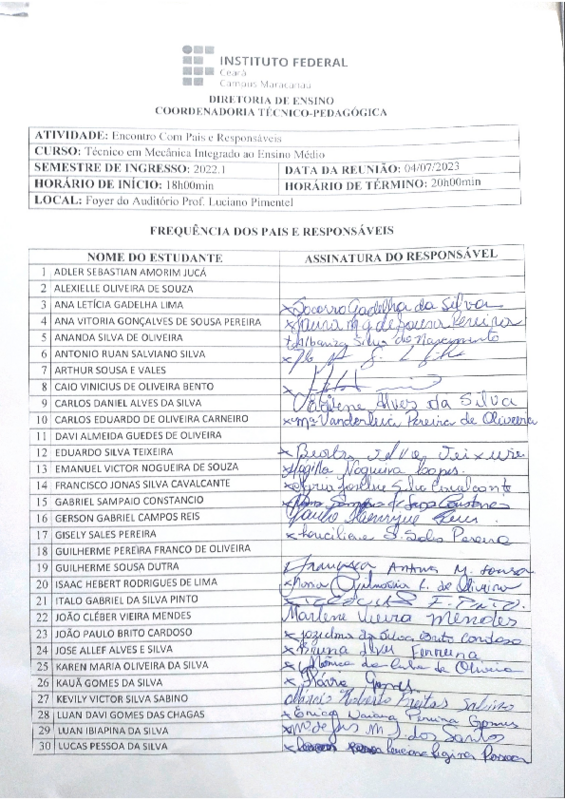 INSTITUTO FEDERAL
Ceará
Campus Maracanaú
DIRETORIA DE ENSINO
COORDENADORIA TÉCNICO-PEDAGÓGICA
ATIVIDADE: Encontro Com Pais e Responsáveis
CURSO: Técnico em Mecânica Integrado ao Ensino Médio
SEMESTRE DE INGRESSO: 2022.1 DATA DA REUNIÃO: 04/07/2023
HORÁRIO DE INÍCIO: 18h00min HORÁRIO DE TÉRMINO: 20h00min
LOCAL: Foyer do Auditório Prof. Luciano Pimentel
FREQUÊNCIA DOS PAIS E RESPONSÁVEIS
NOME DO ESTUDANTE ASSINATURA DO RESPONSÁVEL
1 ADLER SEBASTIAN AMORIM JUCÁ
2 ALEXIELLE OLIVEIRA DE SOUZA
3 ANA LETÍCIA GADELHA LIMA x Socorro Gadelha da Silva
4 ANA VITORIA GONÇALVES DE SOUSA PEREIRA x de Sousa Pereira
5 ANANDA SILVA DE OLIVEIRA Silva do Nascimento
6 ANTONIO RUAN SALVIANO SILVA
7 ARTHUR SOUSA E VALES
8 CAIO VINICIUS DE OLIVEIRA BENTO
9 CARLOS DANIEL ALVES DA SILVA Alves da Silva
10 CARLOS EDUARDO DE OLIVEIRA CARNEIRO x Mª Vanderlucia Pereira de Oliveira
11 DAVI ALMEIDA GUEDES DE OLIVEIRA
12 EDUARDO SILVA TEIXEIRA x Silva
13 EMANUEL VICTOR NOGUEIRA DE SOUZA x Nogueira Lopes
14 FRANCISCO JONAS SILVA CAVALCANTE Silva Cavalcante
15 GABRIEL SAMPAIO CONSTANCIO
16 GERSON GABRIEL CAMPOS REIS Paulo Henrique
17 GISELY SALES PEREIRA x Pereira
18 GUILHERME PEREIRA FRANCO DE OLIVEIRA
19 GUILHERME SOUSA DUTRA Francisca M. Sousa
20 ISAAC HEBERT RODRIGUES DE LIMA x de Oliveira
21 ITALO GABRIEL DA SILVA PINTO x F. PINTO.
22 JOÃO CLÉBER VIEIRA MENDES Marlene Vieira Mendes
23 JOÃO PAULO BRITO CARDOSO x da Silva Brito Cardoso
24 JOSE ALLEF ALVES E SILVA x Bruna Alves Ferreira
25 KAREN MARIA OLIVEIRA DA SILVA x Mônica de Oliveira
26 KAUÃ GOMES DA SILVA x Gomes
27 KEVILY VICTOR SILVA SABINO Roberto Freitas Sabino
28 LUAN DAVI GOMES DAS CHAGAS x Erica Pereira Gomes
29 LUAN IBIAPINA DA SILVA x dos Santos
30 LUCAS PESSOA DA SILVA x Regina Pessoa